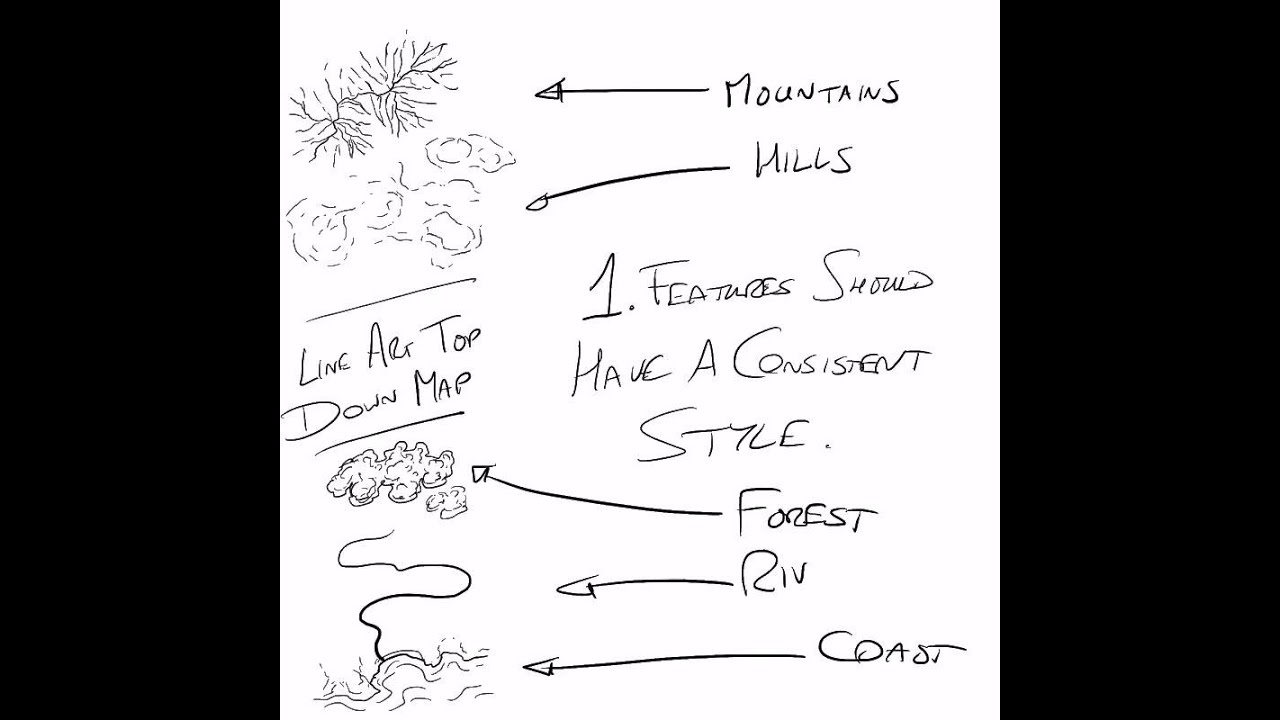 MOUNTAINS
HILLS
1. FEATURES SHOULD
HAVE A CONSISTENT
STYLE.
LINE ART TOP
DOWN MAP
FOREST
RIV
COAST